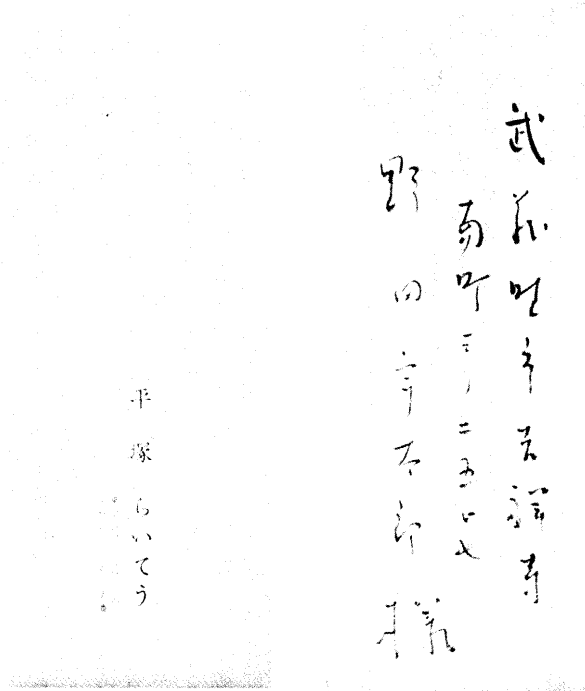 武蔵野市吉祥寺
南町三ノ二五ノ七
野田宇太郎様
平塚らいてう